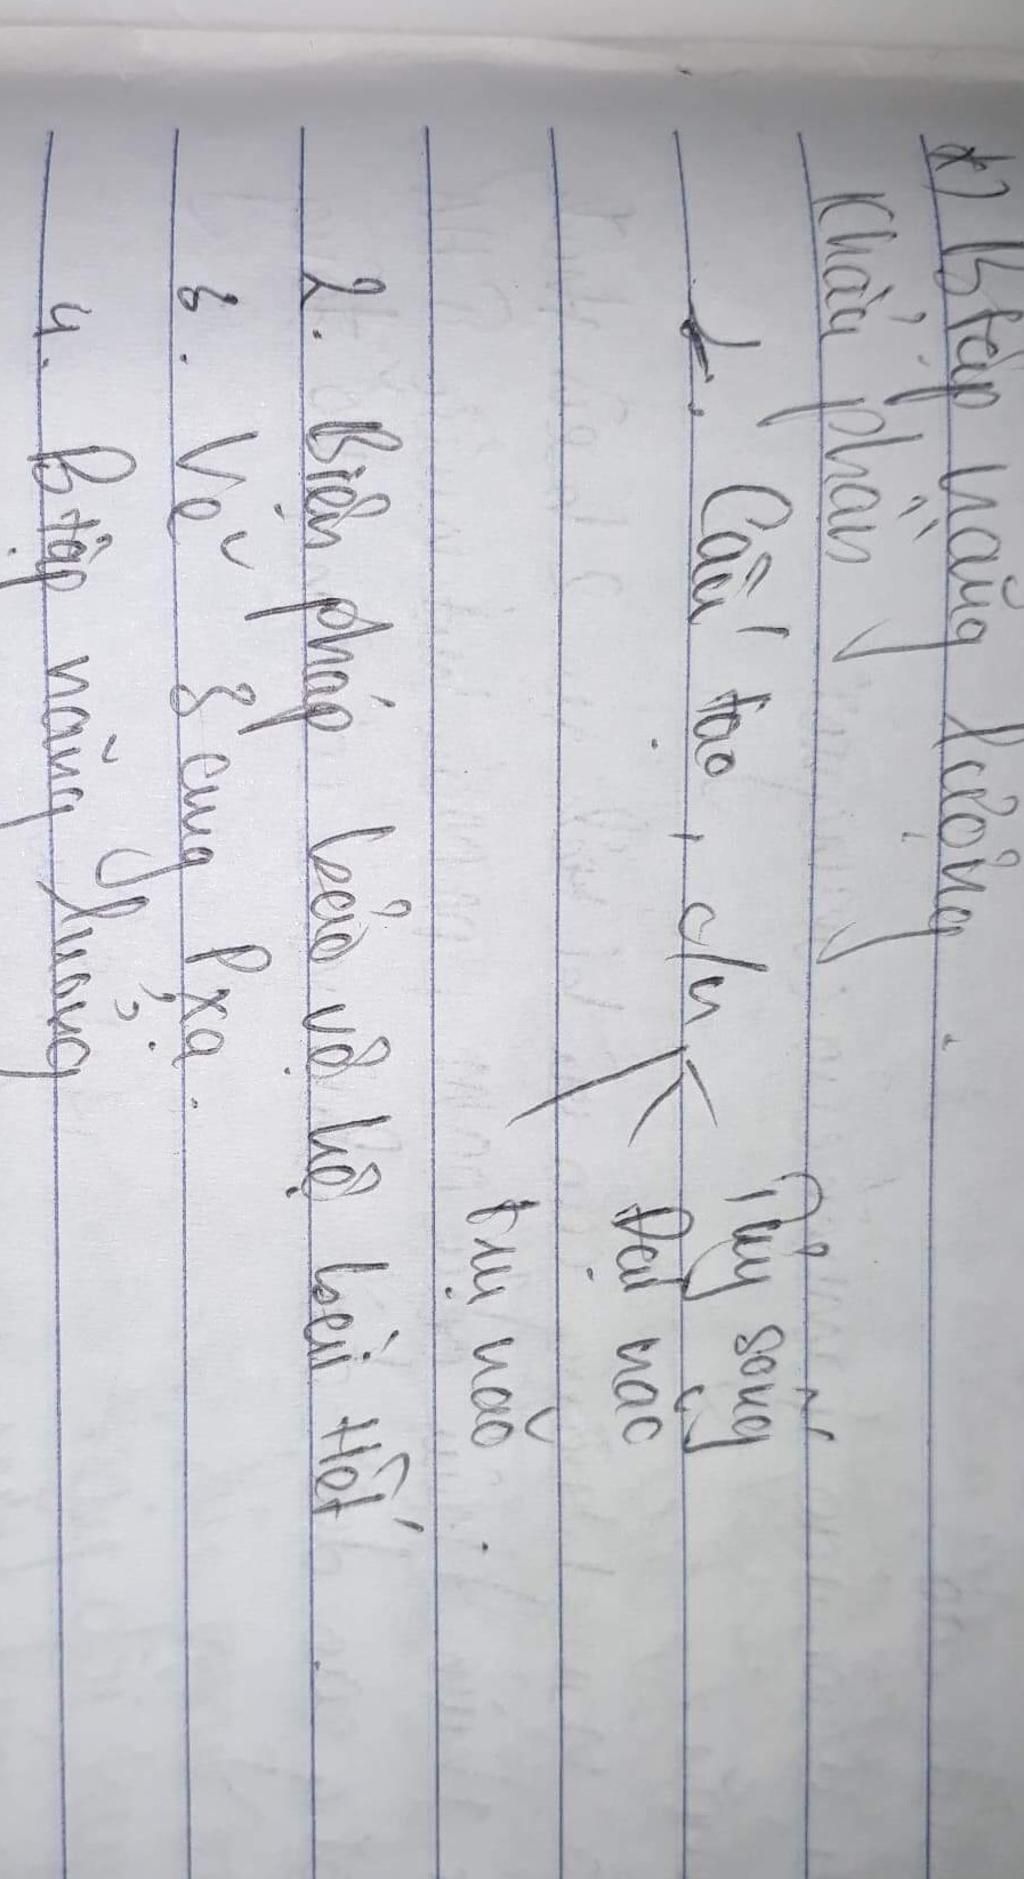 *) B tập năng lượng.
Khẩu phần
1. Cấu tạo, c/n
Tủy sống
Đại não
trụ não.
2. Biện pháp bảo vệ hệ bài tiết
3. Vẽ 3 cung Pxạ.
4. B tập năng lượng